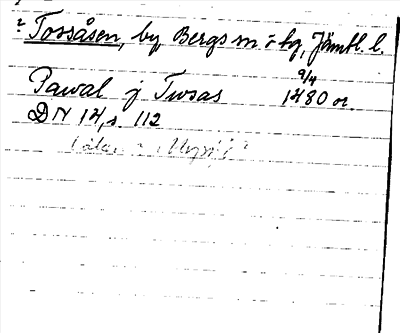 ? Tossåsen, by Bergs sn o. tg, Jämtl. l.
Pawal j Twsas 9/4 1480 or.
DN 14, s. 112